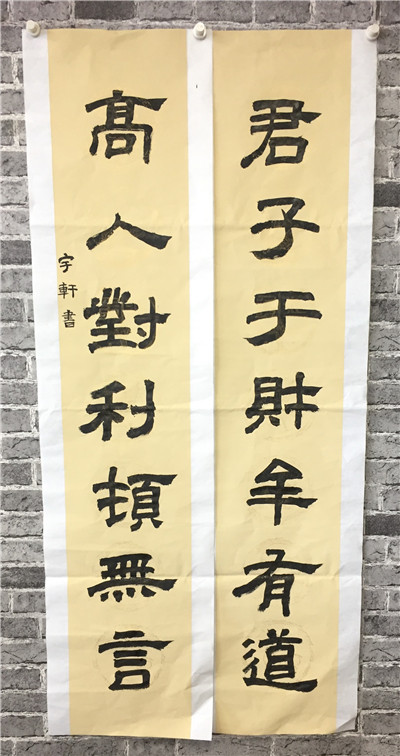 君子于財有道
高人對利頓無言
宇軒書